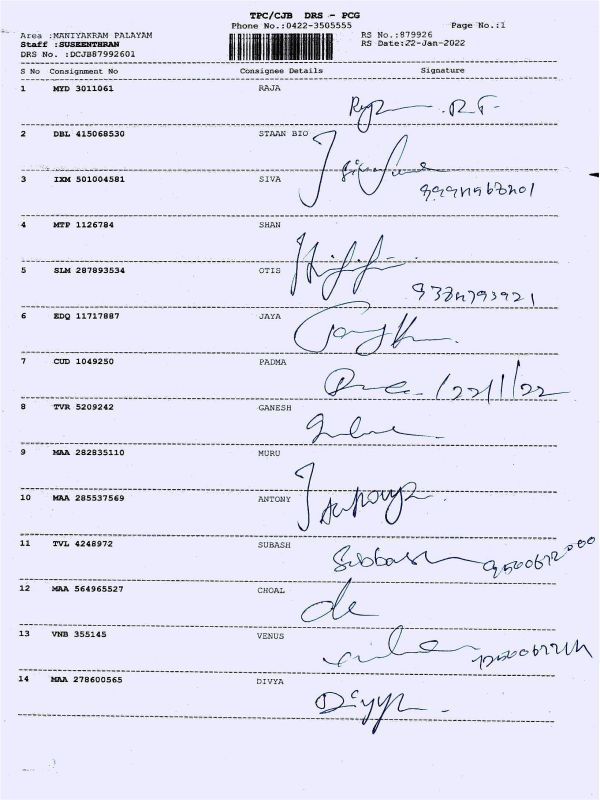 TPC/CJB DRS - PCG
Phone No.:0422-3505555
Page No.:1
Area :MANIYAKRAM PALAYAM
RS No.:879926
Staff :SUSEENTHRAN
RS Date:22-Jan-2022
DRS No. :DCJB87992601
S No Consignment No Consignee Details Signature
1 MYD 3011061 RAJA
2 DBL 415068530 STAAN BIO
3 IXM 501004581 SIVA
4 MTP 1126784 SHAN
5 SLM 287893534 OTIS
6 EDQ 11717887 JAYA
7 CUD 1049250 PADMA
22/1/22
8 TVR 5209242 GANESH
9 MAA 282835110 MURU
10 MAA 285537569 ANTONY
Antony
11 TVL 4248972 SUBASH
Subbash 9500672000
12 MAA 564965527 CHOAL
13 VNB 355145 VENUS
14 MAA 278600565 DIVYA
Divya